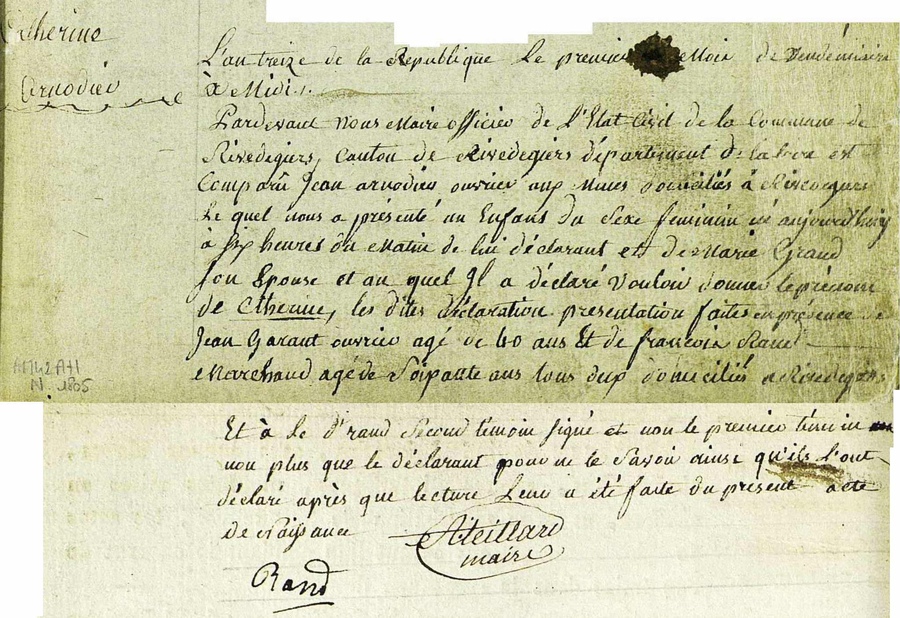 Catherine
Arnodiér
L'an treize de la Republique le premier Moir de vendémiaire
à Midi.
Pardevant nous Maire officiér de l'État Civil de la Commune de
Rivedegiers, Canton de Rivedegiers département de la loire est
Comparû Jean arnodiér ouvrier aux Mines domiciliés à Rivedegiers
le quel nous a présenté un Enfans du Sexe feminin né aujourd'huy
à six heures du Matin de lui déclarant et de Marie Grand
son Epouse et au quel Il a déclaré Vouloir donner le prénom
de Ctherine, les dites déclaration presentation faites en présence de
Jean Garant ouvrier agé de 40 ans Et de francois Rand
Marchand agé de Soixante ans tous deux domiciliés a Rivedegiers
Et à le Sr rand Second témoin signé et non le premier témoin
non plus que le déclarant pour ne le Savoir ainsi qu'ils l'ont
déclaré après que lecture Leur a été faite du présent acte
de Naissance
maire
Rand
N. 1805